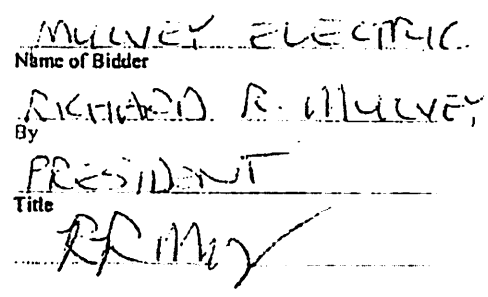 MULVEY ELECTRIC
Name of Bidder
RICHARD R. MULVEY
By
PRESIDENT
Title